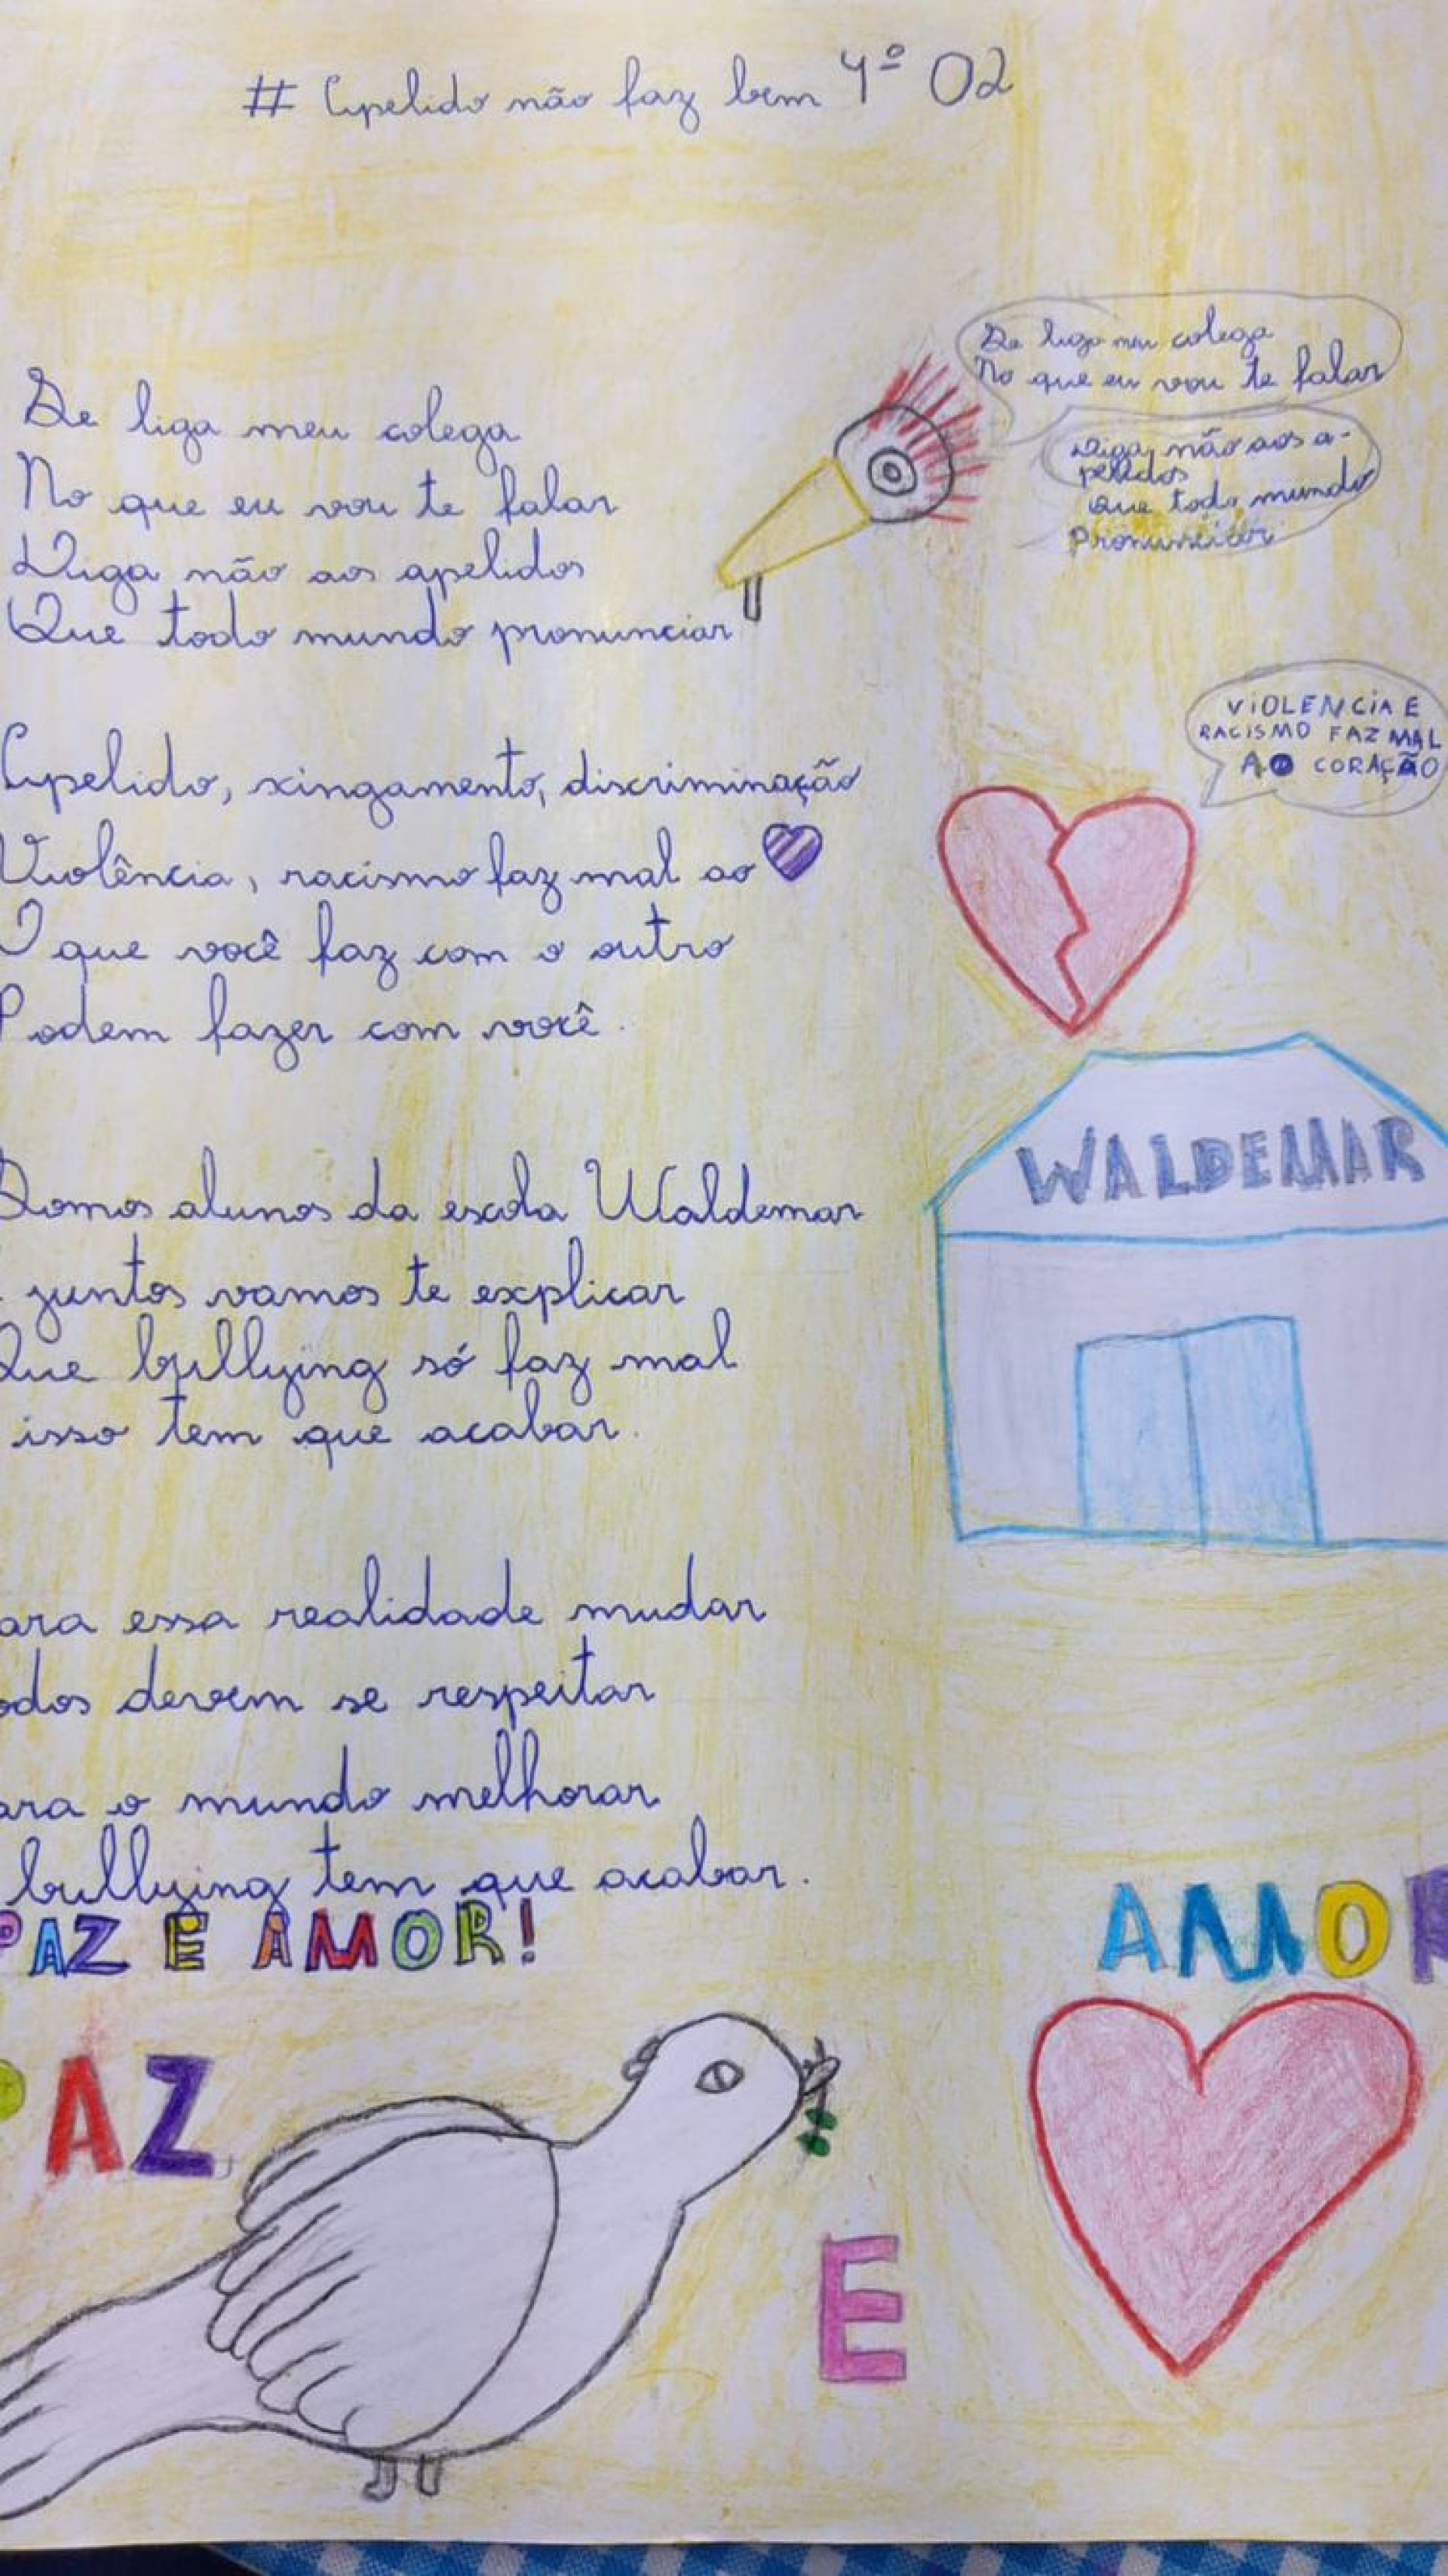 # Apelido não faz bem 4º 02
Se liga meu colega
No que eu vou te falar
Diga não aos apelidos
Que todo mundo pronunciar
Se liga meu colega
No que eu vou te falar
Diga não aos a-
pelidos
Que todo mundo
Apelido, xingamento, discriminação
Violência, racismo faz mal ao
O que você faz com o outro
Podem fazer com você.
VIOLENCIA E
RACISMO FAZ MAL
AO CORAÇÃO
Somos alunos da escola Waldemar
juntos vamos te explicar
Que bullying só faz mal
isso tem que acabar.
WALDEMAR
ara essa realidade mudar
odos devem se respeitar
ara o mundo melhorar
bullying tem que acabar.
PAZ E AMOR!
PAZ
E
AMOR